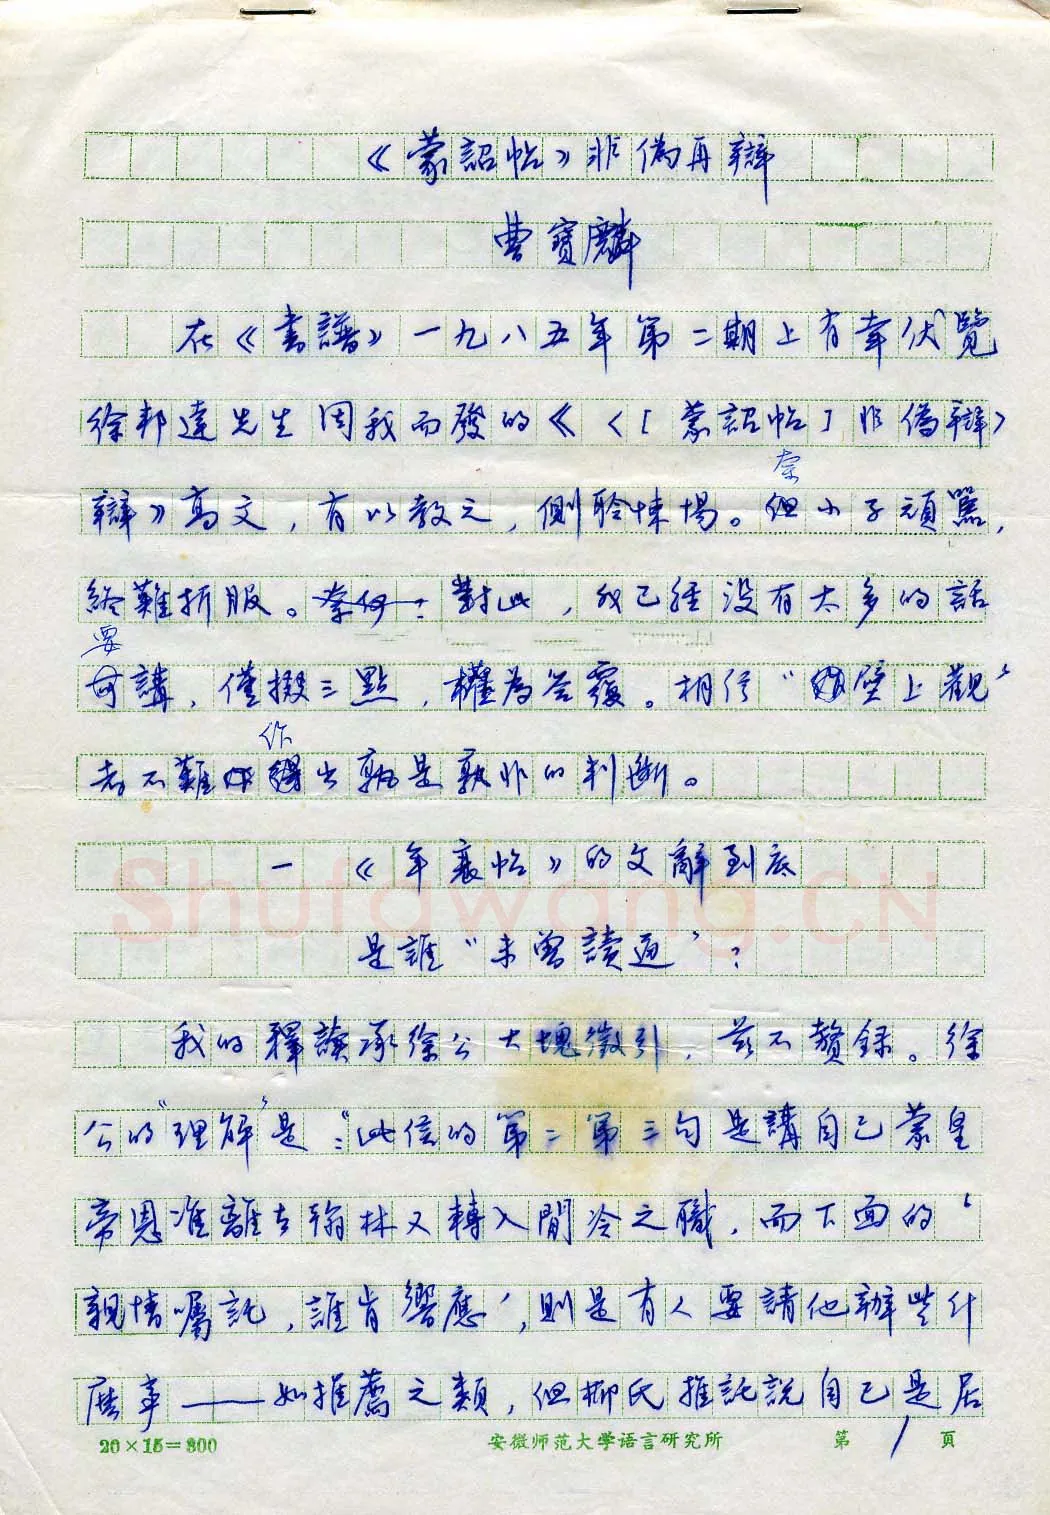 《蒙詔帖》非僞再辯
曹寶麟
在《書譜》一九八五年第二期上有幸伏覽
徐邦達先生因我而發的《〈[蒙詔帖]非僞辯〉
奈
辯》高文，有以教之，側聆悚惕。但小子頑駑，
終難折服。奈何：對此，我已經没有太多的話
要
可講，僅掇三點，權為答覆。相信“壁上觀”
作
者不難得出孰是孰非的判斷。
一 《年衰帖》的文辭到底
是誰“未曾讀通”？
我的釋讀承徐公大塊徵引，兹不贅録。徐
公的“理解”是：“此信的第二第三句是講自己蒙皇
帝恩准離去翰林又轉入閒冷之職，而下面的‘
親情囑託，誰肯響應’，則是有人要請他辦些什
麽事——如推薦之類，但柳氏推託説自己是居
20×15=300 安徽师范大学语言研究所 第1頁
Shufawang.CN